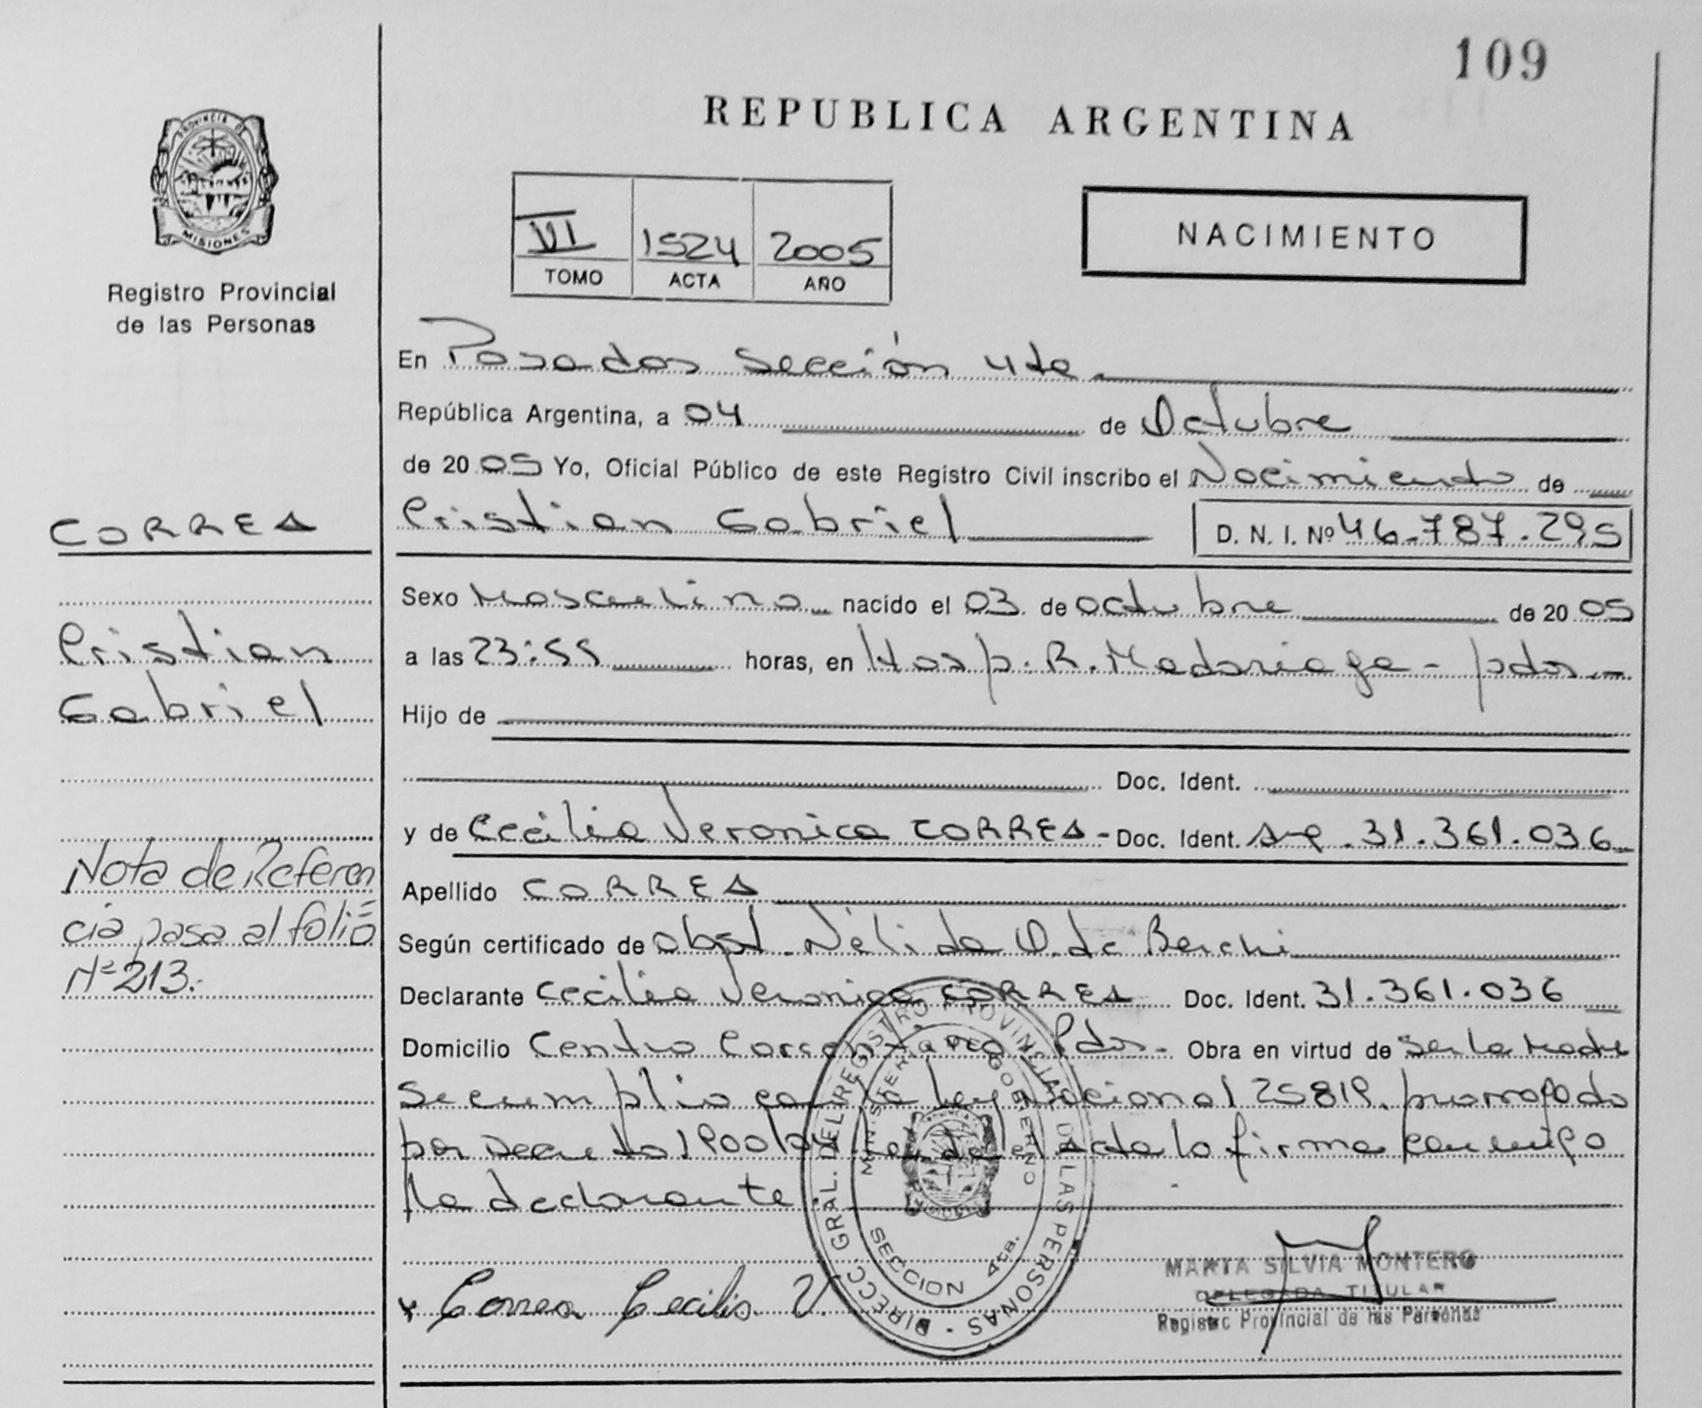 109
REPUBLICA ARGENTINA
PROVINCIA DE
MISIONES
Registro Provincial
de las Personas
VI 1524 2005
TOMO ACTA AÑO
NACIMIENTO
En Posadas Sección 4ta
República Argentina, a 04 de Octubre
de 2005 Yo, Oficial Público de este Registro Civil inscribo el Nacimiento de
Cristian Gabriel D. N. I. Nº 46.787.295
CORREA
Cristian
Gabriel
Sexo Masculino nacido el 03 de octubre de 2005
a las 23:55 horas, en Hosp. R. Madariaga - pdas.-
Hijo de
Doc. Ident.
y de Cecilia Veronica CORREA - Doc. Ident. Arg. 31.361.036
Apellido CORREA
Nota de Referen
cia pasa al folio
Nº 213.
Según certificado de obst. Nélida O. de Berchi
Declarante Cecilia Veronica CORREA Doc. Ident. 31.361.036
Domicilio Centro Pdas. - Obra en virtud de ser la Madre
Se cumplio con la ley Nacional 25819. prorrogado
por Decreto 1900/04 el Acta lo firma conmigo
la declarante.
DIRECC GRAL. DEL REGISTRO PROVINCIAL DE LAS PERSONAS -
MINISTERIO DE GOBIERNO
SECCION 4ta.
x Correa Cecilia V.
MARTA SILVIA MONTERO
DELEGADA TITULAR
Registro Provincial de las Personas